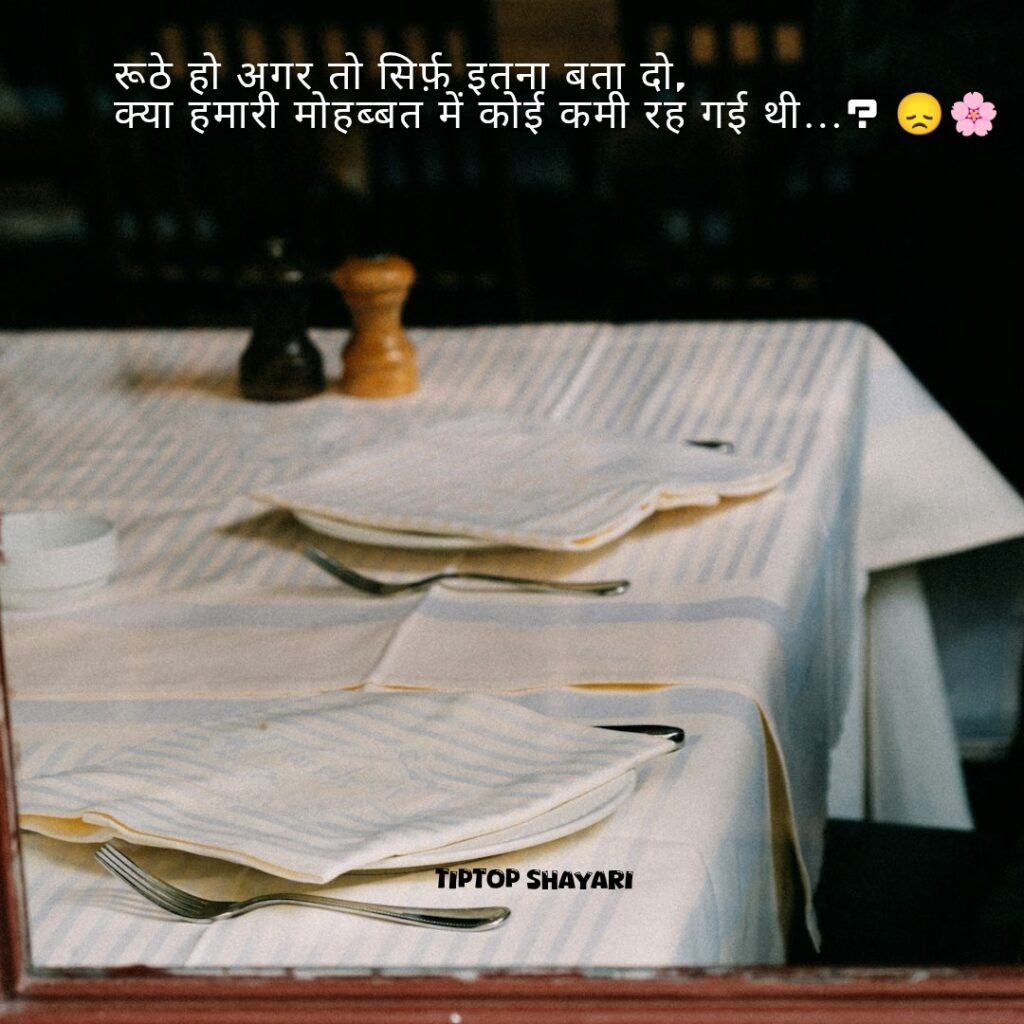 रूठे हो अगर तो सिर्फ़ इतना बता दो,
क्या हमारी मोहब्बत में कोई कमी रह गई थी...? 😞🌸
TIPTOP SHAYARI